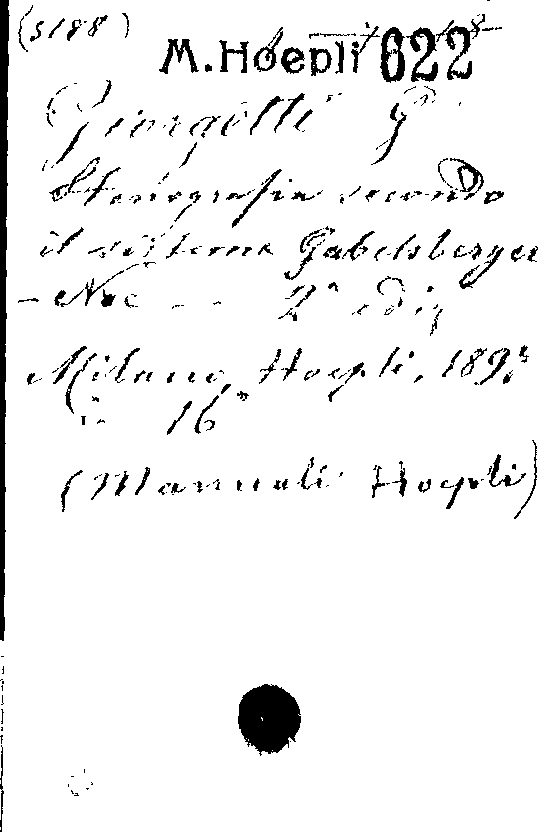 (5188)
M. Hoepli 622
Giorgetti G
Stenografia secondo
il sistema Gabelsberger
- Noe - - 2ª ediz
Milano, Hoepli, 189
in 16°
(Manuali Hoepli)